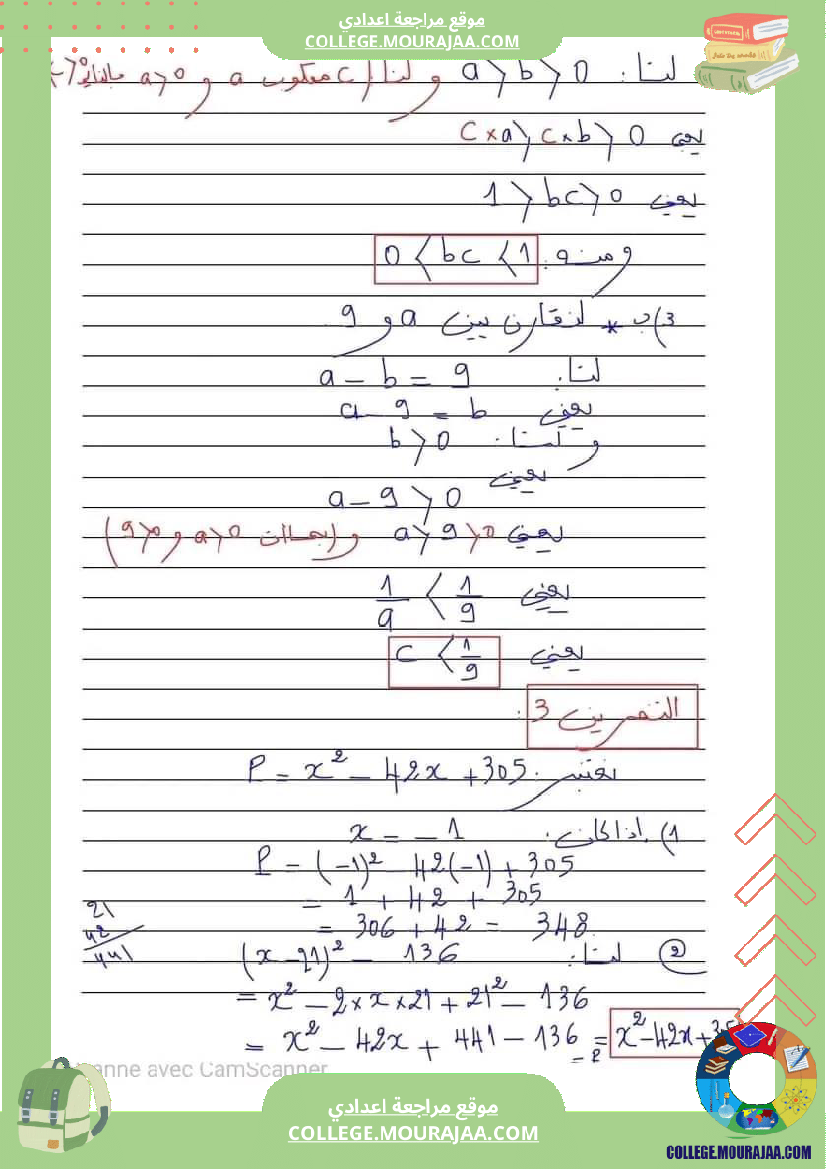 موقع مراجعة اعدادي
COLLEGE.MOURAJAA.COM
لنا: a > b > 0 و لنا c مقلوب a و a > 0
يعني c×a > c×b > 0
يعني 1 > bc > 0
ومنه: 0 < bc < 1
3) ب * لنقارن بين a و 9
لنا: a - b = 9
يعني a - 9 = b
و لنا: b > 0
يعني
a - 9 > 0
يعني a > 9 > 0 وبما أن a > 0 و 9 > 0)
يعني 1/a < 1/9
يعني c < 1/9
التمرين 3 :
نعتبر: P = x² - 42x + 305
1) إذا كان: x = -1
P = (-1)² - 42(-1) + 305
= 1 + 42 + 305
= 306 + 42 = 348
21
42
441
② لنا: (x - 21)² - 136
= x² - 2 × x × 21 + 21² - 136
= x² - 42x + 441 - 136 = x² - 42x + 305
= P
anne avec CamScanner
موقع مراجعة اعدادي
COLLEGE.MOURAJAA.COM
COLLEGE.MOURAJAA.COM